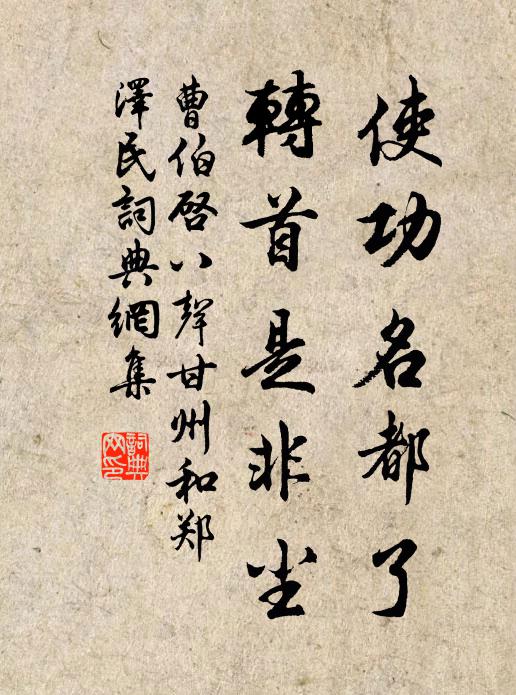 使功名都了
轉首是非尘
曹伯啓八聲甘州和郑
澤民詞典網集
詞典网印